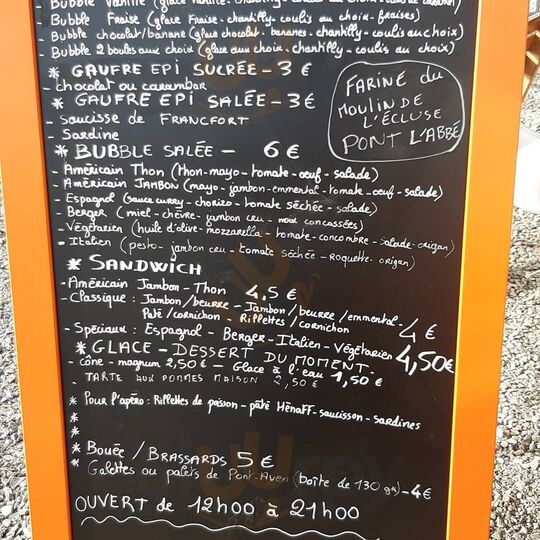 - Bubble Vanille (glace vanille - chantilly - coulis au choix -
- Bubble Fraise (glace Fraise - chantilly - coulis au choix - fraises)
- Bubble chocolat/banane (glace chocolat - bananes - chantilly - coulis au choix)
- Bubble 2 boules aux choix (glace aux choix - chantilly - coulis au choix)
* GAUFRE EPI SUCRÉE - 3 €
- chocolat ou carambar
* GAUFRE EPI SALÉE - 3 €
- Saucisse de FRANCFORT
- Sardine
FARINE du
MOULIN DE
L'ÉCLUSE
PONT L'ABBÉ
* BUBBLE SALÉE - 6 €
- Américain Thon (thon - mayo - tomate - oeuf - salade)
- Américain JAMBON (mayo - jambon - emmental - tomate - oeuf - salade)
- Espagnol (sauce curry - chorizo - tomate séchée - salade)
- Berger (miel - chèvre - jambon cru - noix concassées)
- Végétarien (huile d'olive - mozzarella - tomate - concombre - salade - origan)
- Italien (pesto - jambon cru - tomate séchée - roquette - origan)
* SANDWICH
- Américain Jambon - Thon 4,5 €
- Classique : Jambon/beurre - Jambon/beurre/emmental - 4 €
Paté/cornichon - Rillettes/cornichon
- Spéciaux : Espagnol - Berger - Italien - Végétarien 4,50€
* GLACE - DESSERT DU MOMENT -
- Cône - magnum 2,50 € - Glace à l'eau 1,50 €
- TARTE AUX POMMES MAISON 2,50 €
* Pour l'apéro : Rillettes de poisson - pâté Hénaff - saucisson - sardines
*
*
* Bouée / BRASSARDS 5 €
* Galettes ou palets de Pont-Aven (boîte de 130 grs) - 4 €
OUVERT de 12h00 à 21h00